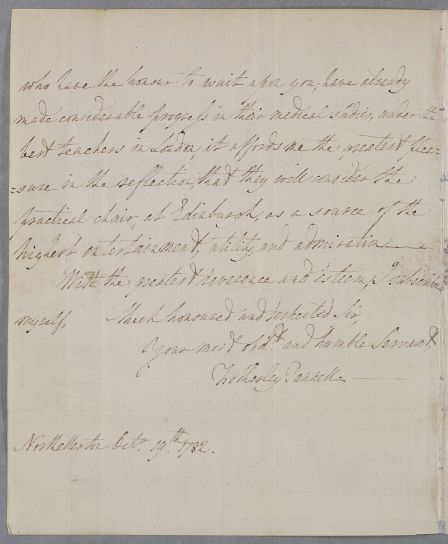 who have the honour to wait upon you, have already
made considerable progress in their medical studies, under the
best teachers in London, it affords me the greatest plea-
-sure in the reflection, that they will consider the
practical chair, at Edinburgh, as a source of the
highest entertainment, utility, and admiration.
With the greatest reverence and esteem, I subscribe
myself,    Much honoured and respected Sir,
Your most obdt. and humble Servant
Northallerton Octr. 19th. 1782.